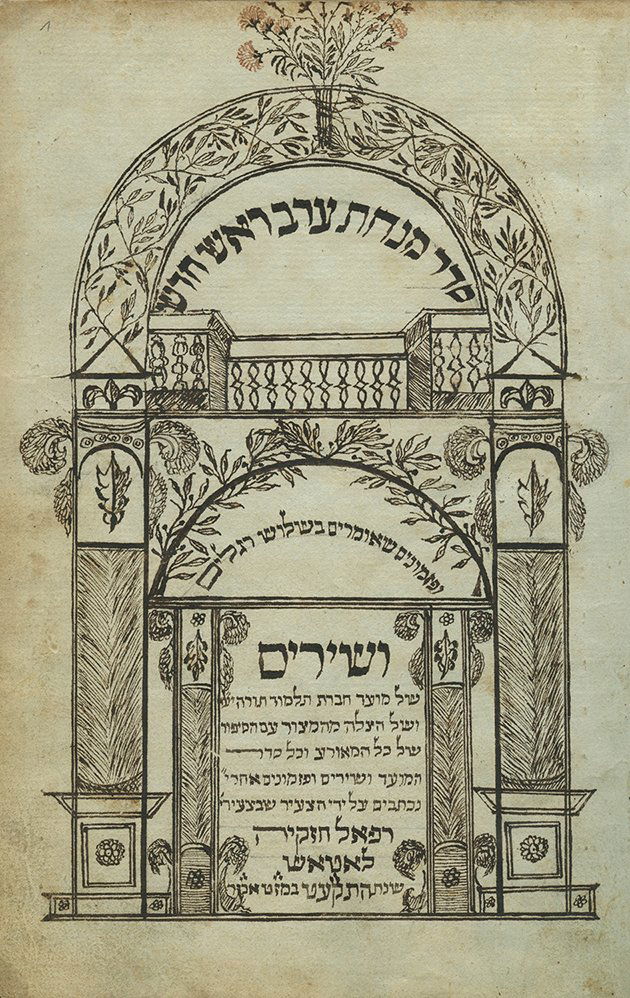 1
סדר מנחת ערב ראש חדש
ופזמונים שאומרים בשלוש רגלים
ושירים
של מועד חברת תלמוד תורה
ושל הצלה מהמצור עם הסיפור
של כל המאורע וכל סדר
המועד ושירים ופזמונים אחרי'
נכתבים על ידי הצעיר שבצעירי'
רפאל חזקיה
לאטאש
שנת התקע"ט